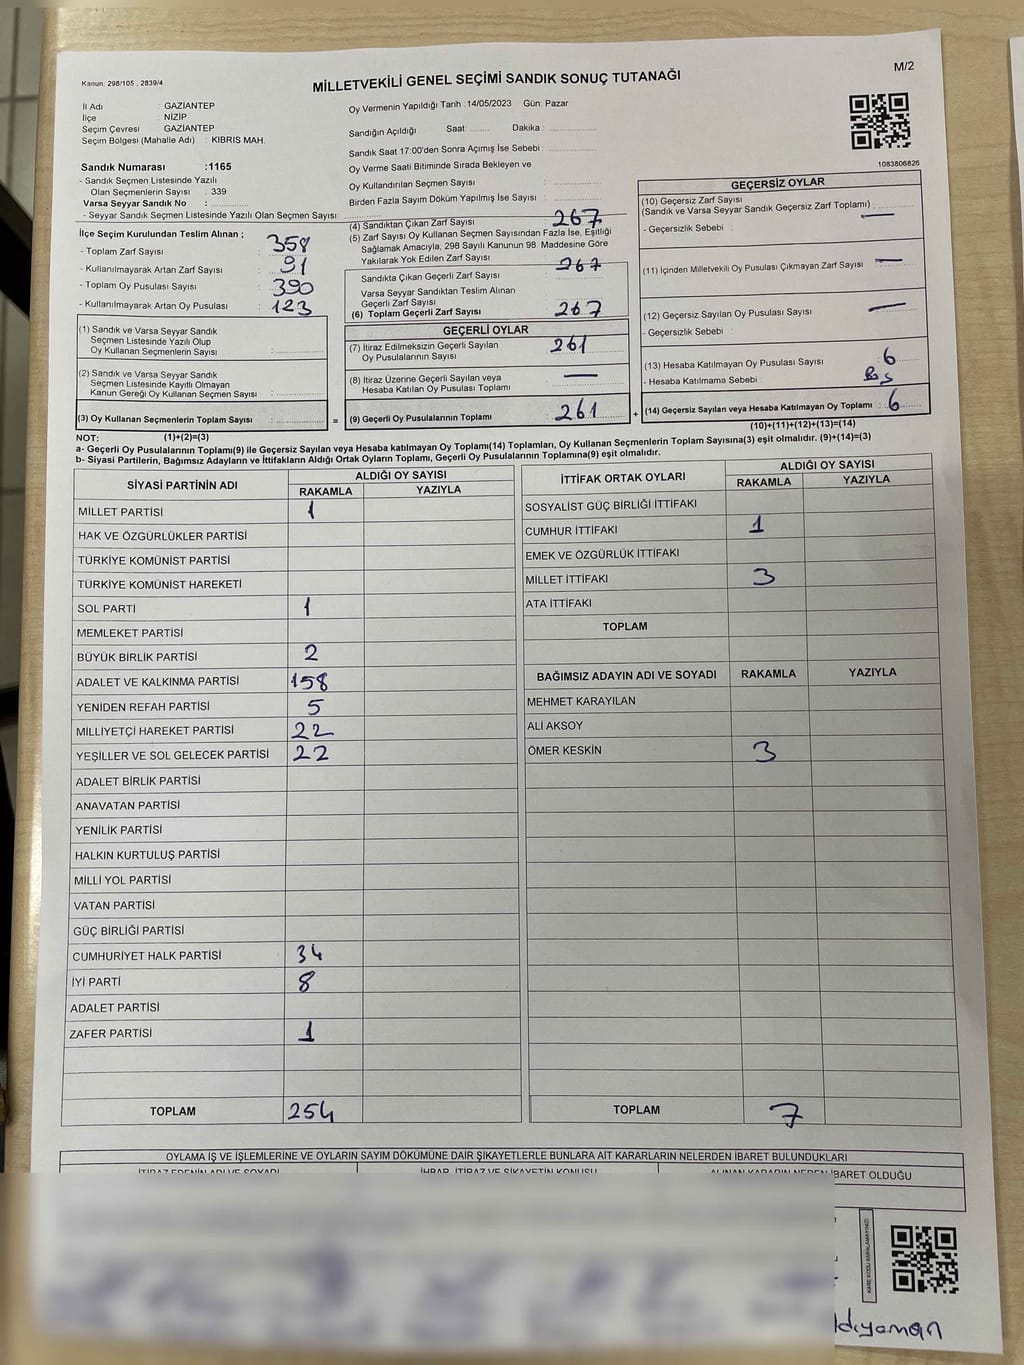 Kanun: 298/105 , 2839/4
MİLLETVEKİLİ GENEL SEÇİMİ SANDIK SONUÇ TUTANAĞI
M/2
İl Adı : GAZİANTEP
İlçe : NİZİP
Seçim Çevresi : GAZİANTEP
Seçim Bölgesi (Mahalle Adı) : KIBRIS MAH.
Sandık Numarası :1165
- Sandık Seçmen Listesinde Yazılı
Olan Seçmenlerin Sayısı : 339
Varsa Seyyar Sandık No :
- Seyyar Sandık Seçmen Listesinde Yazılı Olan Seçmen Sayısı
İlçe Seçim Kurulundan Teslim Alınan ;
- Toplam Zarf Sayısı : 358
- Kullanılmayarak Artan Zarf Sayısı : 91
- Toplam Oy Pusulası Sayısı : 390
- Kullanılmayarak Artan Oy Pusulası : 123
(1) Sandık ve Varsa Seyyar Sandık
Seçmen Listesinde Yazılı Olup
Oy Kullanan Seçmenlerin Sayısı :
(2) Sandık ve Varsa Seyyar Sandık
Seçmen Listesinde Kayıtlı Olmayan
Kanun Gereği Oy Kullanan Seçmen Sayısı :
(3) Oy Kullanan Seçmenlerin Toplam Sayısı : =
(1)+(2)=(3)
Oy Vermenin Yapıldığı Tarih :14/05/2023 Gün: Pazar
Sandığın Açıldığı Saat: Dakika :
Sandık Saat 17:00'den Sonra Açımış İse Sebebi :
Oy Verme Saati Bitiminde Sırada Bekleyen ve
Oy Kullandırılan Seçmen Sayısı :
Birden Fazla Sayım Döküm Yapılmış İse Sayısı :
(4) Sandıktan Çıkan Zarf Sayısı : 267
(5) Zarf Sayısı Oy Kullanan Seçmen Sayısından Fazla İse, Eşitliği
Sağlamak Amacıyla; 298 Sayılı Kanunun 98. Maddesine Göre
Yakılarak Yok Edilen Zarf Sayısı :
Sandıkta Çıkan Geçerli Zarf Sayısı : 267
Varsa Seyyar Sandıktan Teslim Alınan
Geçerli Zarf Sayısı :
(6) Toplam Geçerli Zarf Sayısı : 267
GEÇERLİ OYLAR
(7) İtiraz Edilmeksizin Geçerli Sayılan
Oy Pusulalarının Sayısı : 261
(8) İtiraz Üzerine Geçerli Sayılan veya
Hesaba Katılan Oy Pusulası Toplamı : —
(9) Geçerli Oy Pusulalarının Toplamı : 261 +
1083806826
GEÇERSİZ OYLAR
(10) Geçersiz Zarf Sayısı
(Sandık ve Varsa Seyyar Sandık Geçersiz Zarf Toplamı) : —
- Geçersizlik Sebebi :
(11) İçinden Milletvekili Oy Pusulası Çıkmayan Zarf Sayısı : —
(12) Geçersiz Sayılan Oy Pusulası Sayısı : —
- Geçersizlik Sebebi :
(13) Hesaba Katılmayan Oy Pusulası Sayısı : 6
- Hesaba Katılmama Sebebi :
(14) Geçersiz Sayılan veya Hesaba Katılmayan Oy Toplamı : 6
(10)+(11)+(12)+(13)=(14)
NOT:
a- Geçerli Oy Pusulalarının Toplamı(9) ile Geçersiz Sayılan veya Hesaba katılmayan Oy Toplamı(14) Toplamları, Oy Kullanan Seçmenlerin Toplam Sayısına(3) eşit olmalıdır. (9)+(14)=(3)
b- Siyasi Partilerin, Bağımsız Adayların ve İttifakların Aldığı Ortak Oyların Toplamı, Geçerli Oy Pusulalarının Toplamına(9) eşit olmalıdır.
SİYASİ PARTİNİN ADI ALDIĞI OY SAYISI
RAKAMLA YAZIYLA
MİLLET PARTİSİ 1
HAK VE ÖZGÜRLÜKLER PARTİSİ
TÜRKİYE KOMÜNİST PARTİSİ
TÜRKİYE KOMÜNİST HAREKETİ
SOL PARTİ 1
MEMLEKET PARTİSİ
BÜYÜK BİRLİK PARTİSİ 2
ADALET VE KALKINMA PARTİSİ 158
YENİDEN REFAH PARTİSİ 5
MİLLİYETÇİ HAREKET PARTİSİ 22
YEŞİLLER VE SOL GELECEK PARTİSİ 22
ADALET BİRLİK PARTİSİ
ANAVATAN PARTİSİ
YENİLİK PARTİSİ
HALKIN KURTULUŞ PARTİSİ
MİLLİ YOL PARTİSİ
VATAN PARTİSİ
GÜÇ BİRLİĞİ PARTİSİ
CUMHURİYET HALK PARTİSİ 34
İYİ PARTİ 8
ADALET PARTİSİ
ZAFER PARTİSİ 1
TOPLAM 254
İTTİFAK ORTAK OYLARI ALDIĞI OY SAYISI
RAKAMLA YAZIYLA
SOSYALİST GÜÇ BİRLİĞİ İTTİFAKI
CUMHUR İTTİFAKI 1
EMEK VE ÖZGÜRLÜK İTTİFAKI
MİLLET İTTİFAKI 3
ATA İTTİFAKI
TOPLAM
BAĞIMSIZ ADAYIN ADI VE SOYADI RAKAMLA YAZIYLA
MEHMET KARAYILAN
ALİ AKSOY
ÖMER KESKİN 3
TOPLAM 7
OYLAMA İŞ VE İŞLEMLERİNE VE OYLARIN SAYIM DÖKÜMÜNE DAİR ŞİKAYETLERLE BUNLARA AİT KARARLARIN NELERDEN İBARET BULUNDUKLARI
İTİRAZ EDENİN ADI VE SOYADI İHBAR, İTİRAZ VE ŞİKAYETİN KONUSU ALINAN KARARIN NEDEN İBARET OLDUĞU
KARE KODU KARALAMAYINIZ!